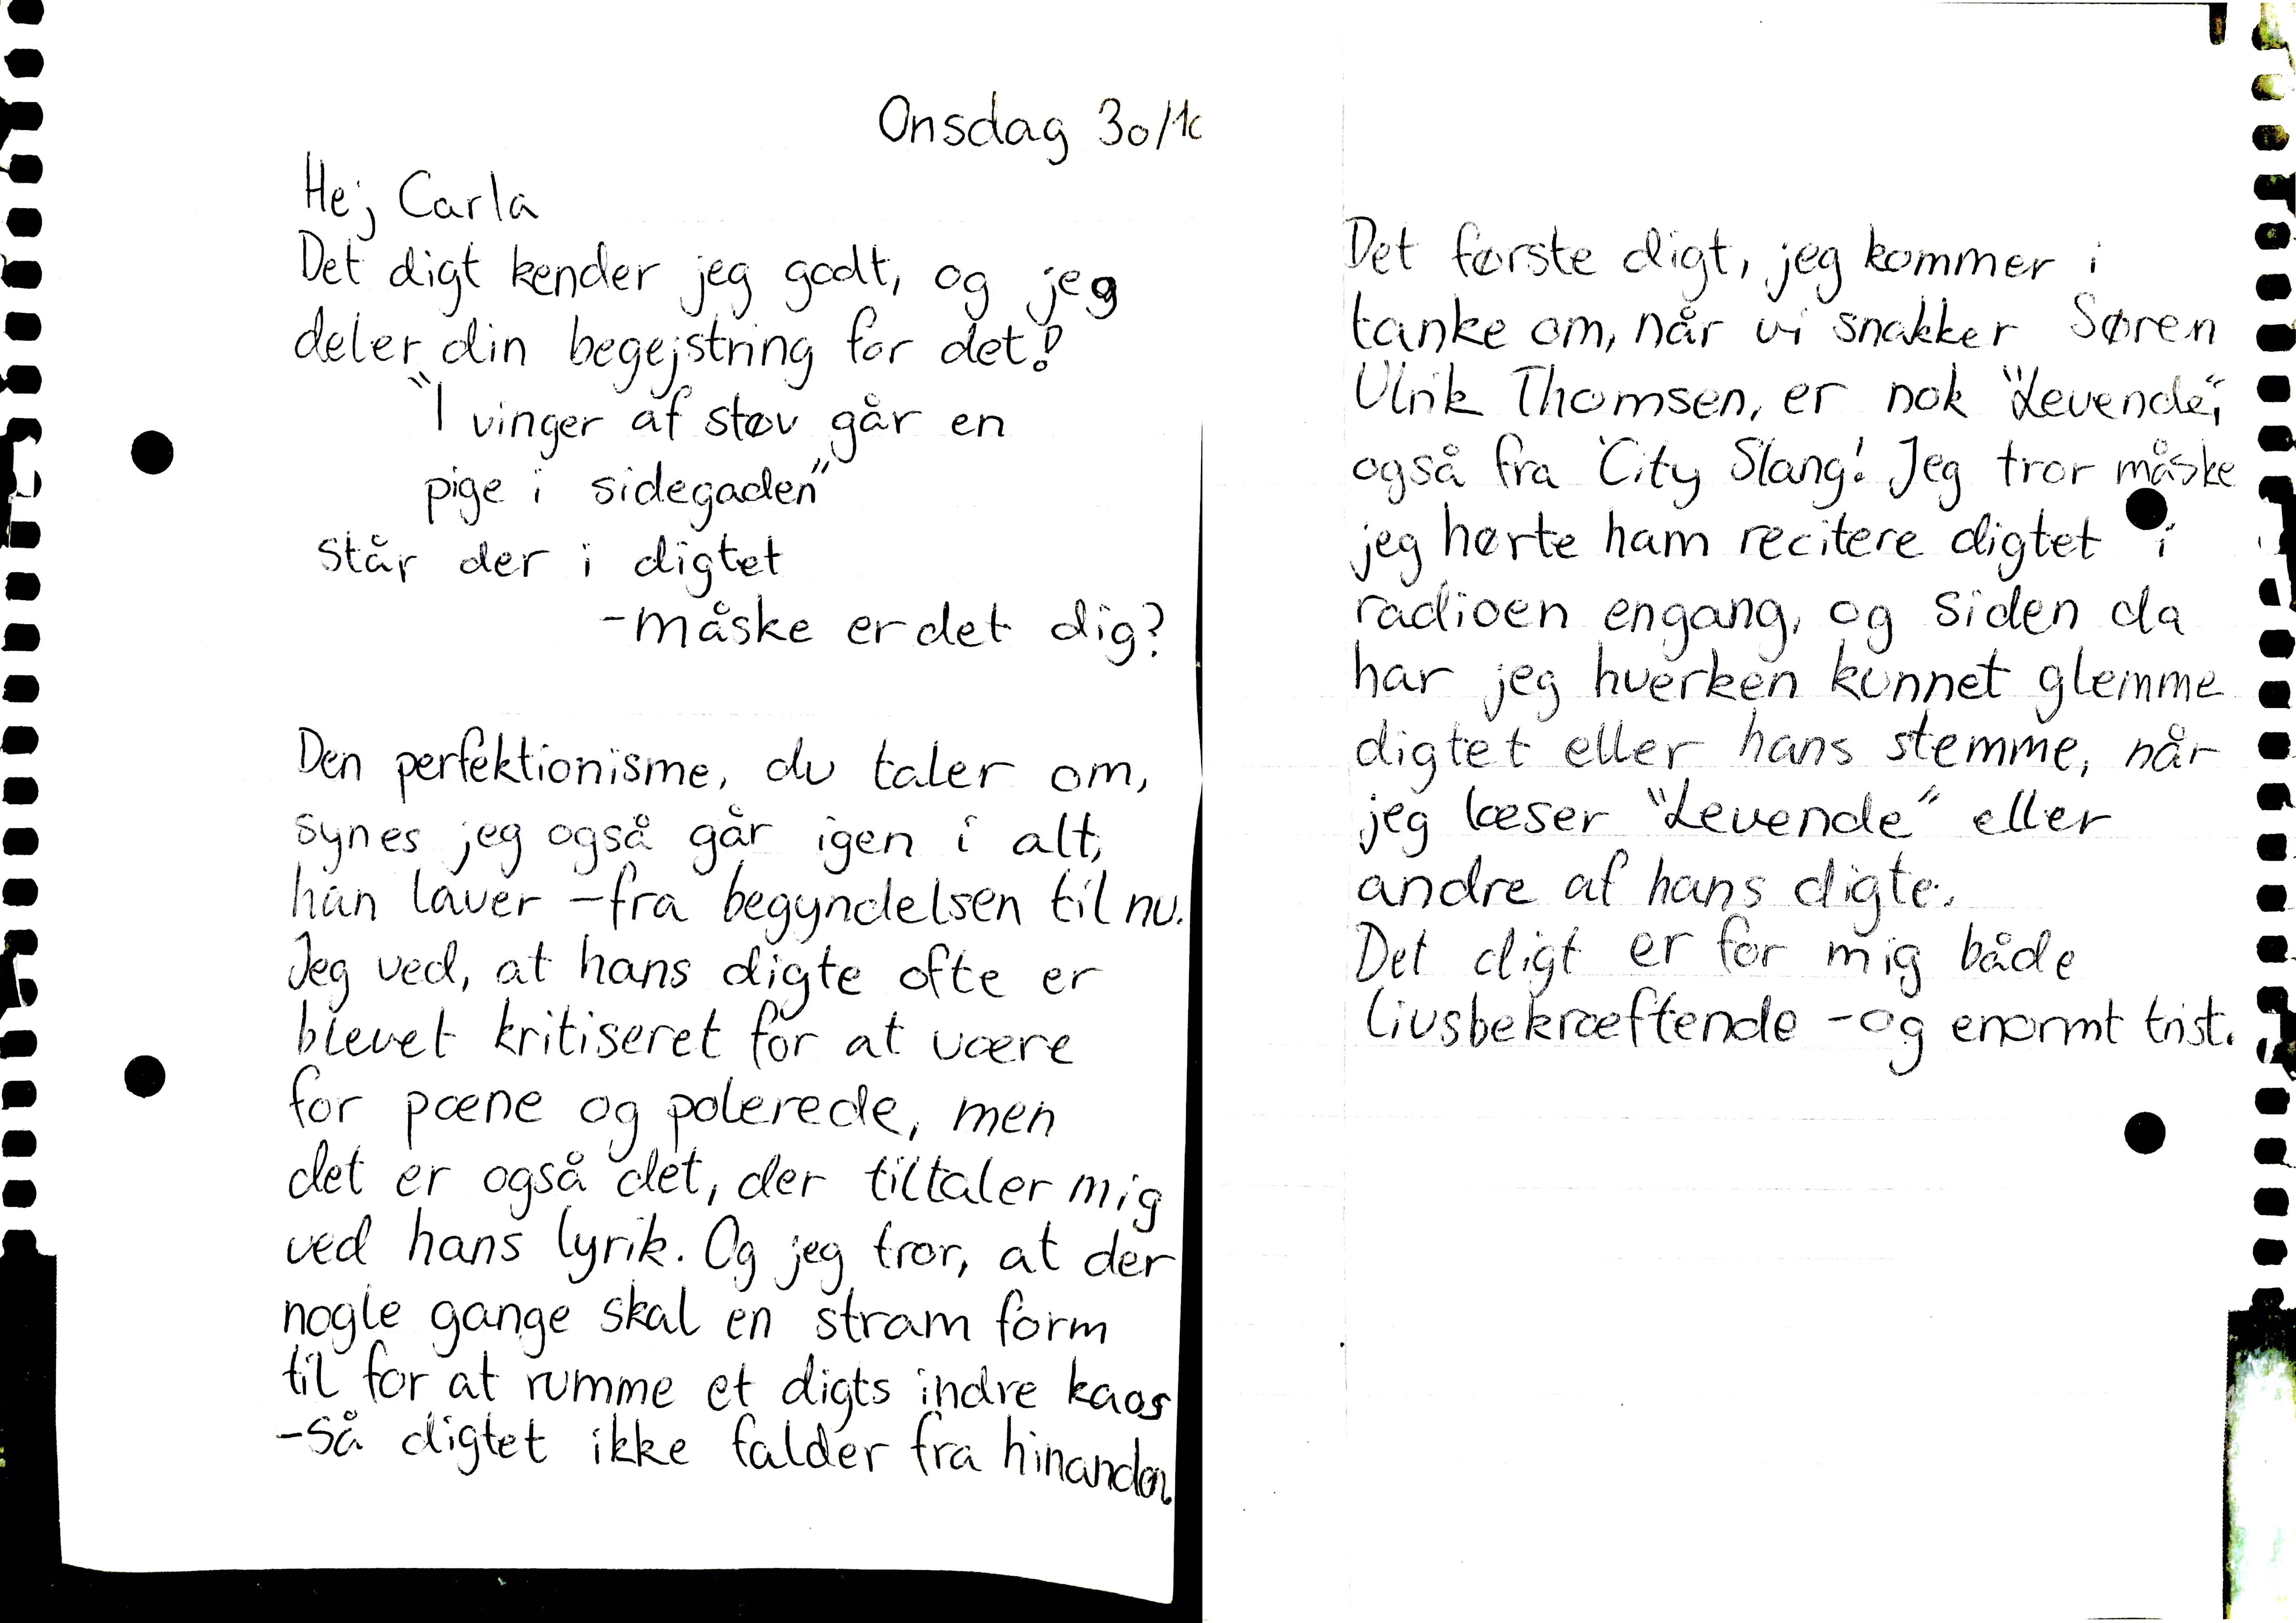 Onsdag 30/10
Hej Carla
Det digt kender jeg godt, og jeg
deler din begejstring for det!
"I vinger af støv går en
pige i sidegaden"
står der i digtet
-måske er det dig?
Den perfektionisme, du taler om,
synes jeg også går igen i alt,
han laver - fra begyndelsen til nu.
Jeg ved, at hans digte ofte er
blevet kritiseret for at være
for pæne og polerede, men
det er også det, der tiltaler mig
ved hans lyrik. Og jeg tror, at der
nogle gange skal en stram form
til for at rumme et digts indre kaos
-så digtet ikke falder fra hinanden.
Det første digt, jeg kommer i
tanke om, når vi snakker Søren
Ulrik Thomsen, er nok "Levende",
også fra 'City Slang'. Jeg tror måske
jeg hørte ham recitere digtet i
radioen engang, og siden da
har jeg hverken kunnet glemme
digtet eller hans stemme, når
jeg læser "Levende" eller
andre af hans digte.
Det digt er for mig både
livsbekræftende - og enormt trist.